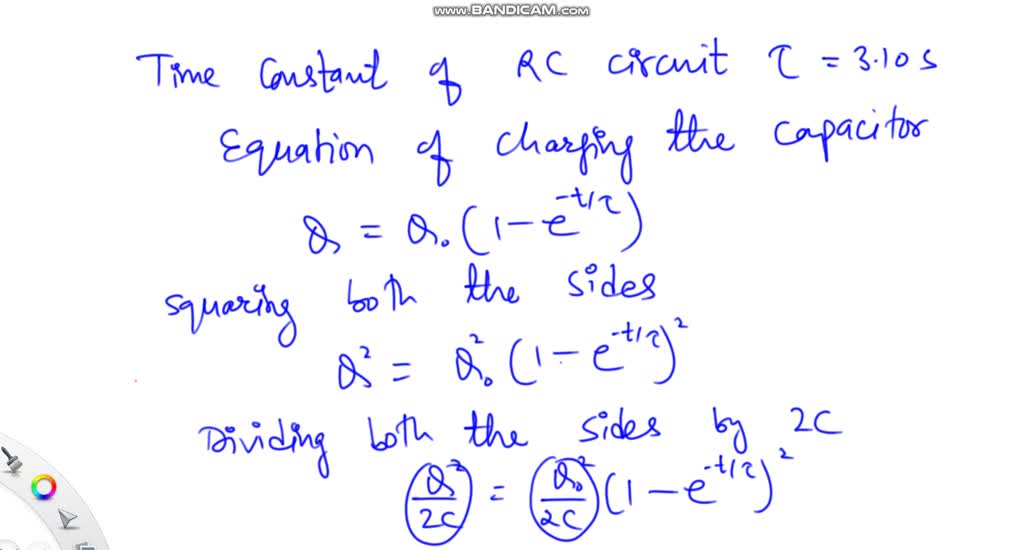 www.BANDICAM.com
Time Constant of RC circuit τ = 3.10 s
Equation of charging the capacitor
Q = Q₀ (1 - e^(-t/τ))
Squaring both the sides
Q² = Q₀² (1 - e^(-t/τ))²
Dividing both the sides by 2C
(Q²/2C) = (Q₀²/2C) (1 - e^(-t/τ))²